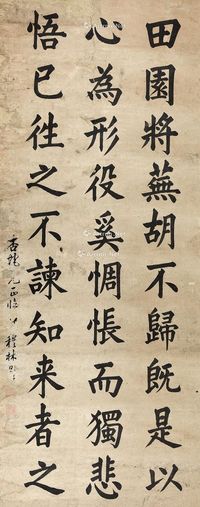 田園將蕪胡不歸既是以
心為形役奚惆悵而獨悲
悟已往之不諫知来者之